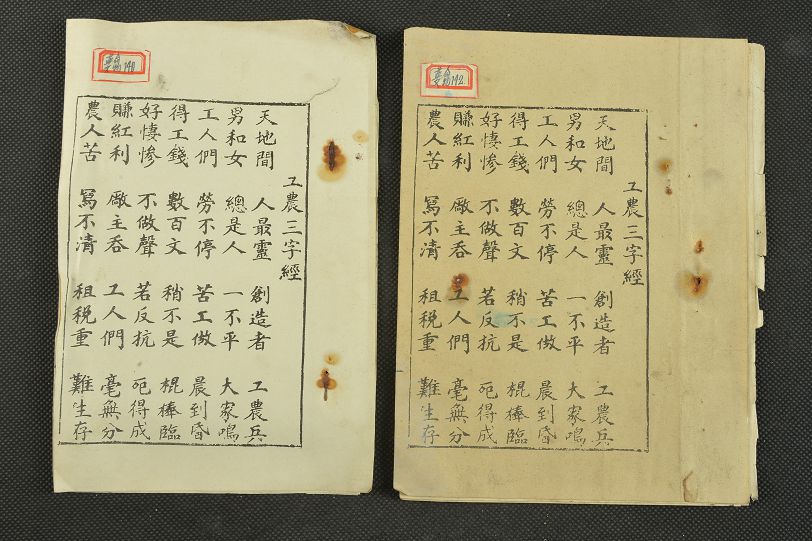 工農三字經
天地間 人最靈 創造者 工農兵
男和女 總是人 一不平 大家鳴
工人們 勞不停 苦工做 晨到昏
得工錢 數百文 稍不是 棍棒臨
好悽惨 不做聲 若反抗 死得成
賺紅利 厰主吞 工人們 毫無分
農人苦 寫不清 租税重 難生存
142
工農三字經
天地間 人最靈 創造者 工農兵
男和女 總是人 一不平 大家鳴
工人們 勞不停 苦工做 晨到昏
得工錢 數百文 稍不是 棍棒臨
好悽惨 不做聲 若反抗 死得成
賺紅利 厰主吞 工人們 毫無分
農人苦 寫不清 租税重 難生存